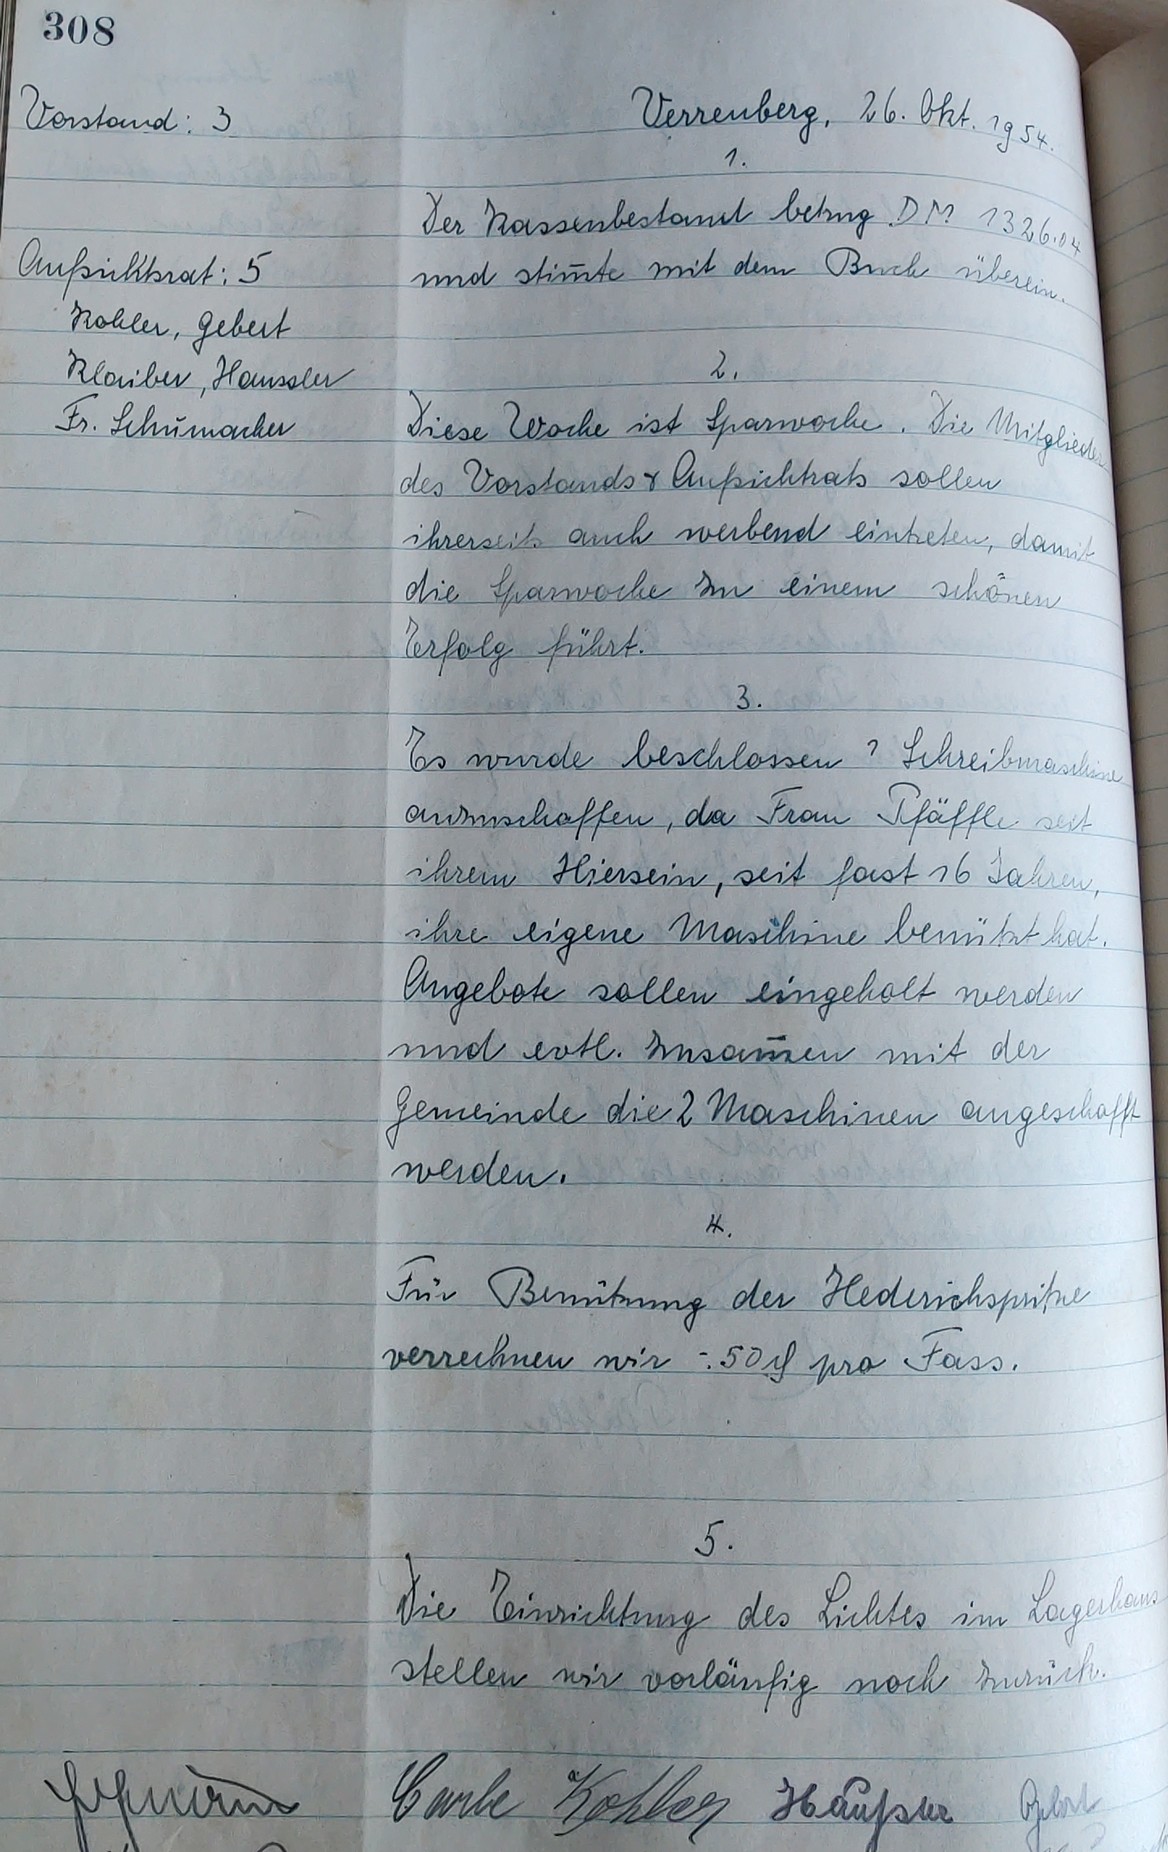 308
Vorstand: 3
Verrenberg, 26. Okt. 1954.
1.
Der Kassenbestand betrug DM 1326.04
Aufsichtsrat: 5
und stim̅te mit dem Buch überein.
Kohler, Gebert
Klaiber, Haussler
Fr. Schumacher
2.
Diese Woche ist Sparwoche. Die Mitglieder
des Vorstands & Aufsichtrats sollen
ihrerseits auch werbend eintreten, damit
die Sparwoche zu einem schönen
Erfolg führt.
3.
Es wurde beschlossen 1 Schreibmaschine
anzuschaffen, da Frau Pfäffle seit
ihrem Hiersein, seit fast 16 Jahren,
ihre eigene Maschine benützt hat.
Angebote sollen eingeholt werden
und evtl. zusam̅en mit der
Gemeinde die 2 Maschinen angeschafft
werden.
4.
Für Benützung der Hederichspritze
verrechnen wir -.50 ₰ pro Fass.
5.
Die Einrichtung des Lichtes im Lagerhaus
stellen wir vorläufig noch zurück.
Kohler Häußler Gebert